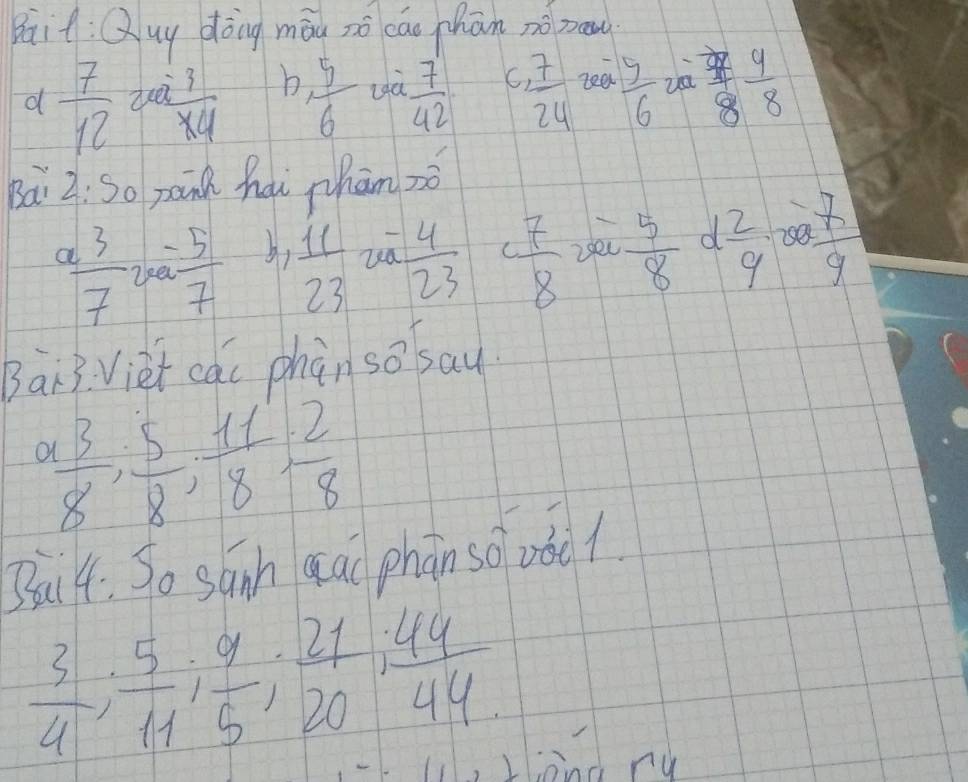 Bài 1: Quy đồng mẫu số các phân số sau.
a 7/12 và 3/4 b, 5/6 và 7/42 c, 7/24 và 5/6 và 9/8
Bài 2: So sánh hai phân số
a 3/7 và 5/7 b, 11/23 và 4/23 c 7/8 và 5/8 d 2/9 và 7/9
Bài 3. Viết các phân số sau.
a 3/8 ; 5/8 ; 11/8 ; 2/8
Bài 4: So sánh các phân số với 1.
3/4 ; 5/11 ; 9/5 ; 21/20 ; 44/44.